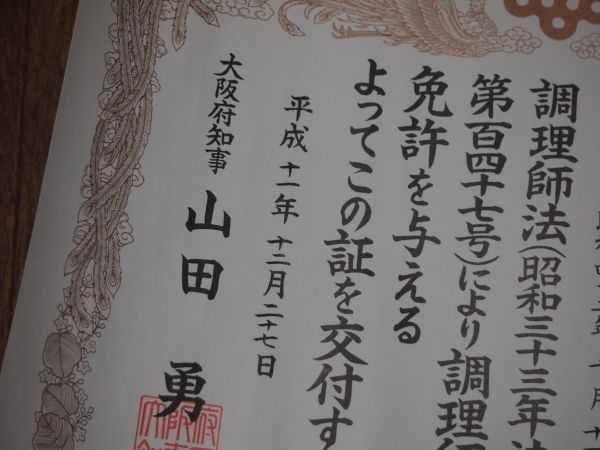 調理師法(昭和三十三年法
第百四十七号)により調理師
免許を与える
よってこの証を交付す
平成十一年十二月二十七日
大阪府知事 山田勇